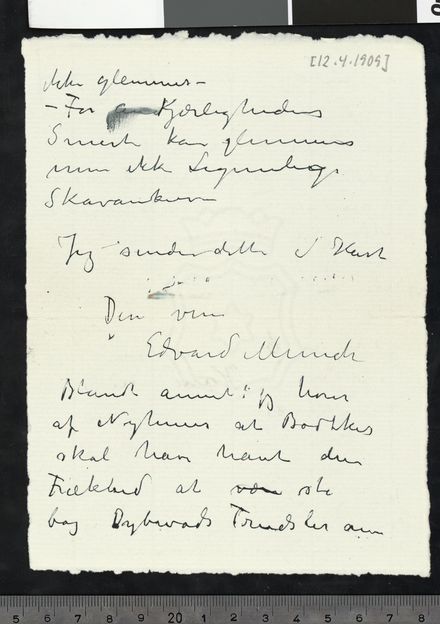 [12.4.1909]
ikke glemmes –
– For Kjærlighedens
Smerte kan glemmes
men ikke Legemlige
Skavanker
Jeg sender dette i Hast
Din ven
Edvard Munch
Blandt annet: jeg hører
af Nyhmus at Bødtker
skal have havt den
Frækhed at være stå
bag Dybwads Trudsler om
5 6 7 8 9 20 1 2 3 4 5 6 7 8